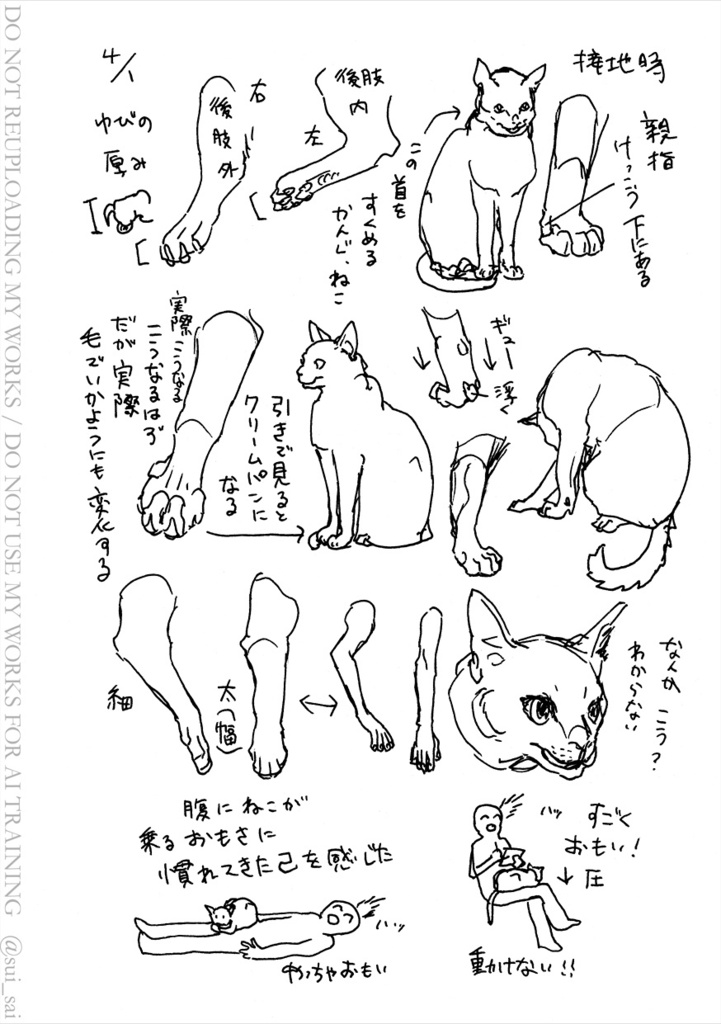 DO NOT REUPLOADING MY WORKS / DO NOT USE MY WORKS FOR AI TRAINING @sui_sai
4/1
ゆびの
厚み
右
後肢外
後肢
内
左
この首を
すくめる
かんじ、ねこ
接地時
親指
けっこう下にある
実際こうなる
こうなるはず
だが実際
毛でいかようにも変化する
引きで見ると
クリームパンに
なる
ギュー
浮く
細
太(幅)
なんかこう?
わからない
腹にねこが
乗るおもさに
慣れてきた己を感じた
ハッ
めっちゃおもい
ハッ
すごく
おもい!
↓圧
動かけない!!